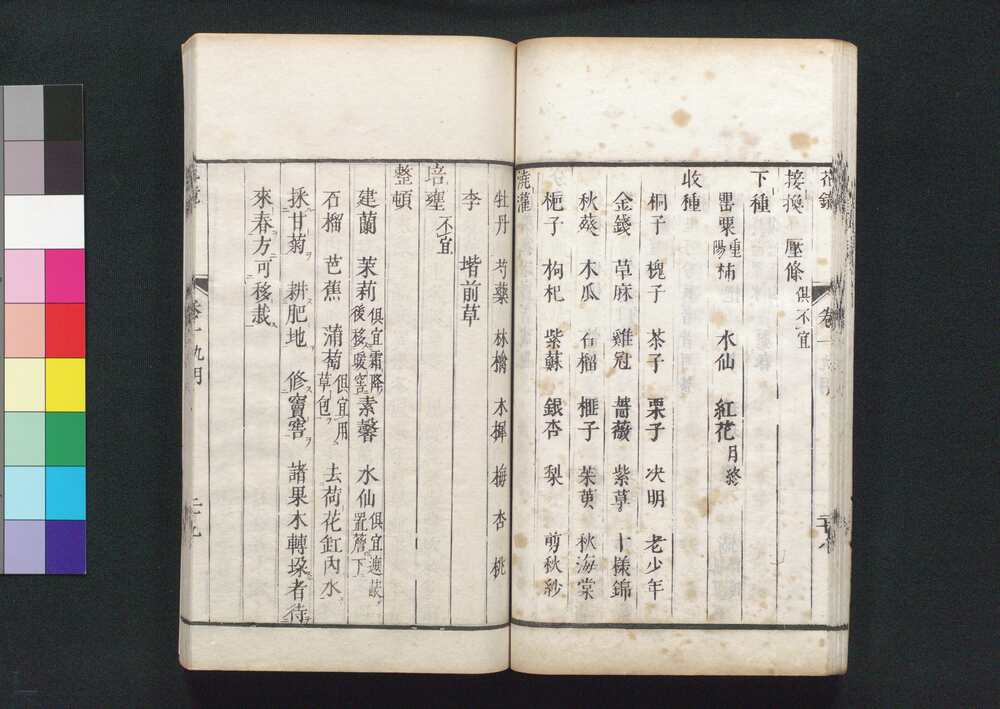 花鏡 卷一 九月 二十八
接換 壓條 俱不宜
下種
罌粟 重陽 補 水仙 紅花 月終
收種
桐子 槐子 茶子 栗子 决明 老少年
金錢 草麻 雞冠 薔薇 紫草 十樣錦
秋葵 木瓜 石榴 榧子 茱萸 秋海棠
梔子 枸杞 紫蘇 銀杏 梨 剪秋紗
澆灌
牡丹 芍藥 林檎 木樨 梅 杏 桃
李 堦前草
培壅 不宜
整頓
建蘭 茉莉 俱宜霜降後移暖窖 素馨 水仙 俱宜遮蔽置簷下
石榴 芭蕉 蒲萄 俱宜用草包 去荷花缸內水
採甘菊 耕肥地 修竇窖 諸果木轉垜者待
來春方可移栽
卷一 九月 二十九